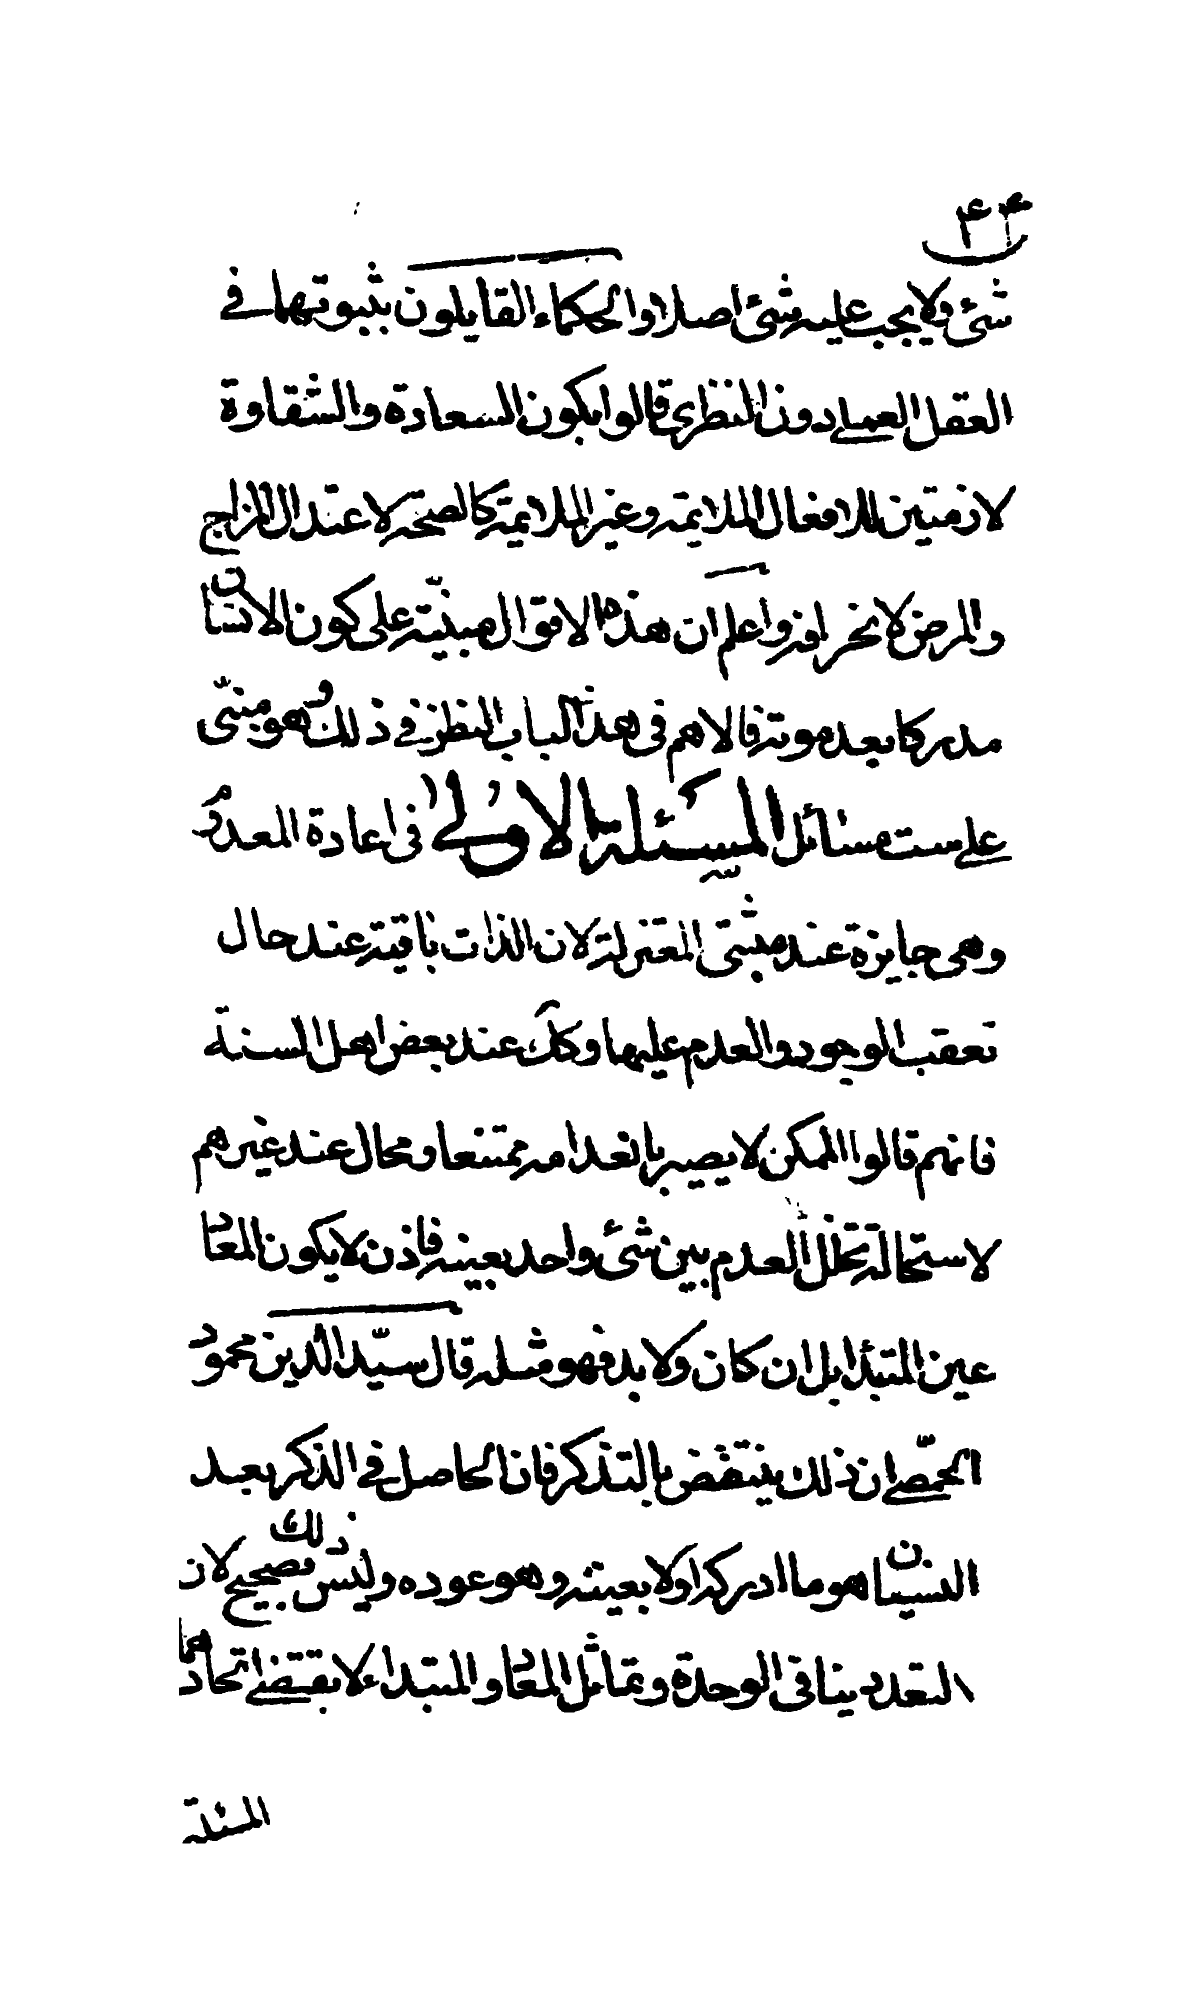 ٤٤
شئ ولا يجب عليه شئ اصلا والحكماء القايلون بثبوتهما في
العقل العملي دون النظري قالوا بكون السعادة والشقاوة
لازمتين للافعال الملايمة وغير الملايمة كالصحة لاعتدال المزاج
والمرض لانحرافه واعلم ان هذه الاقوال مبنيّة على كون الانسان
مدركا بعد موته فالاهم في هذا الباب النظر في ذلك وهو مبنيّ
على ست مسائل المسئلة الاولى في اعادة المعدوم
وهي جايزة عند مثبتي المعتزلة لان الذات باقية عند حال
تعقب الوجود والعدم عليها وكك عند بعض اهل السنة
فانهم قالوا الممكن لا يصير بانعدامه ممتنعا ومحال عند غيرهم
لاستحالة تخلل العدم بين شئ واحد بعينه فاذن لا يكون المعاد
عين المبتدأ بل ان كان ولا بد فهو مثله قال سيّد الدين محمود
الحمّصي ان ذلك ينتقض بالتذكر فان الحاصل في الذكر بعد
النسيان هو ما ادركه اولا بعينه وهو عوده وليس ذلك بصحيح لان
التعدد ينافي الوحدة وتماثل المعاد والمبتداء لا يقتضي اتحادهما
المسئلة